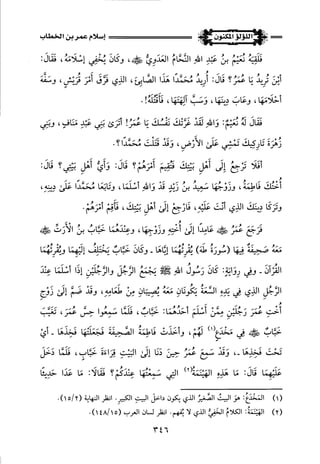 إسلام عمر بن الخطاب
اللؤلؤ المكنون
فلقيه نعيم بن عبد الله النحام العدوي ﷺ، وكان يخفي إسلامه، فقال:
أين تريد يا عمر؟ قال: أريد محمدا هذا الصابئ، الذي فرق أمر قريش، وسفه
أحلامها، وعاب دينها، وسب آلهتها، فأقتله!.
فقال له نعيم: والله لقد غرتك نفسك يا عمر! أترى بني عبد مناف، وبني
زهرة تاركيك تمشي على الأرض، وقد قتلت محمدا؟.
أفلا ترجع إلى أهل بيتك فتقيم أمرهم؟ قال: وأي أهل بيتي؟ قال:
أختك فاطمة، وزوجها سعيد بن زيد قد والله أسلما، وتابعا محمدا على دينه،
وتركا دينك الذي أنت عليه، فارجع إلى أهل بيتك، فأقم أمرهم.
فرجع عمر ﷺ عامدا إلى أخته وزوجها، وعندهما خباب بن الأرت ﷺ
معه صحيفة فيها (سورة طه) يقرئهما إياها -وكان خباب يختلف إليهما ويقرئهما
القرآن- وفي رواية: كان رسول الله ﷺ يجمع الرجل والرجلين إذا أسلما عند
الرجل الذي في يده السعة يكونان معه يصيبان من طعامه، وقد ضم إلى زوج
أخت عمر رجلين ممن أسلم أحدهما: خباب، فلما سمعوا حس عمر، تغيب
خباب ﷺ في مخدع(١) لهم، وأخذت فاطمة الصحيفة فجعلتها فخذها -أي
تحت فخذها-، وقد سمع عمر حين دنا إلى البيت قراءة خباب، فلما دخل
عليهما قال: ما هذه الهينمة(٢) التي سمعتها عندكم؟ فقالا: ما عدا حديثا
(١) المخدع: هو البيت الصغير الذي يكون داخل البيت الكبير. انظر النهاية (١٥/٢).
(٢) الهينمة: الكلام الخفي الذي لا يفهم. انظر لسان العرب (١٤٨/١٥).
٣٤٦